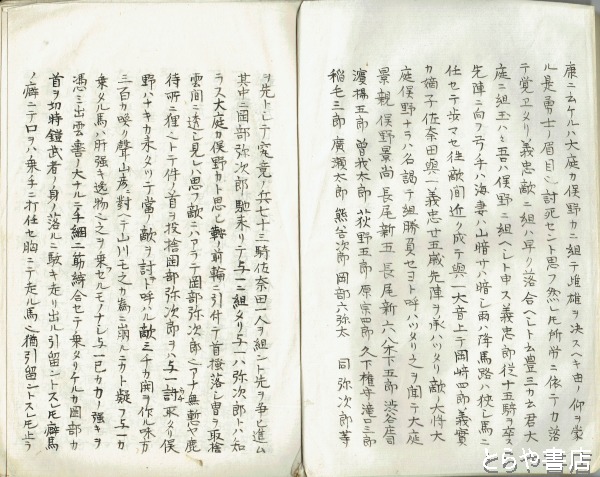 康ニ云ケルハ大庭カ俣野カニ組テ雌雄ヲ决スヘキ由ノ仰ヲ蒙
ル是勇士ノ眉目ニ討死セント思フ然レ𪜈所労ニ依テカ落
テ覚ヱタリ義忠敵ニ組ハ早ク落合ヘシト云豊三カ云君大
庭ニ組玉ハヽ吾ハ俣野ニ組ヘシト申ス義忠郎従十五騎ヲ卒ス
先陣ニ向フ弓手ハ海妻ハ山暗サハ暗シ雨ハ降馬路ハ狭シ馬ニ
任セテ歩マセ徃敵間近ク成テ與一大音上テ岡﨑四郎義實
カ嫡子佐奈田與一義忠廿五歳先陣ヲ承ハツタリ敵ノ大将大
庭俣野ナラハ名謁テ組勝負セヨト呼ハツタリ之ヲ聞テ大庭
景親俣野景尚長尾新五長尾新六八木下五郎渋谷庄司
濱楊五郎曽我太郎荻野五郎原宗四郎久下権守滝口三郎
稲毛三郎廣瀬太郎熊谷次郎岡部六弥太同弥次郎等
ヲ先トシテ究竟ノ兵七十三騎佐奈田一人ヲ組ント先ヲ争ヒ進ム
其中ニ岡部弥次郎馳来リテ与一ニ組タリ与一ハ弥次郎トハ知
ラス大庭カ俣野カト思ヒ鞍ノ前輪ニ引付テ首掻落シ曽ヲ取捨
雲間ニ透シ見レハ思フ敵ニハアラテ岡部弥次郎也アナ無慙ヤ鹿
待所ノ狸ニトテ件ノ首ヲ投捨岡部弥次郎ヲハ与一討取タリ俣
野ハナキカ永タツテ當ノ敵ヲ討ト呼ハル敵三千カ閧ヲ作ル味方
三百カ喚ク聲山彦ニ對ヘテ山川モ之カ為ニ崩ルヽカト疑フ与一カ
乗タル馬ハ肝強キ逸物也之ヲ乗セルモナシ与一己カ力ノ強キヲ
憑ミ出雲轡ノ大ナルニ手綱二筋綜合セテ乗タリケルカ岡部カ
首ヲ切時鎧武者ノ身ノ落ルニ駭キ走リ出ル引留ントスレ𪜈癖馬
ノ癖ニテ口ヲハ乗手ニ打任セ胸ニテ走ル馬也猶引留ントスレ𪜈止ラ
とらや書店